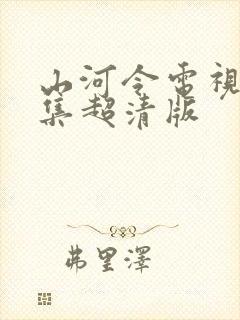 山河令電視
集超清版
弗里澤